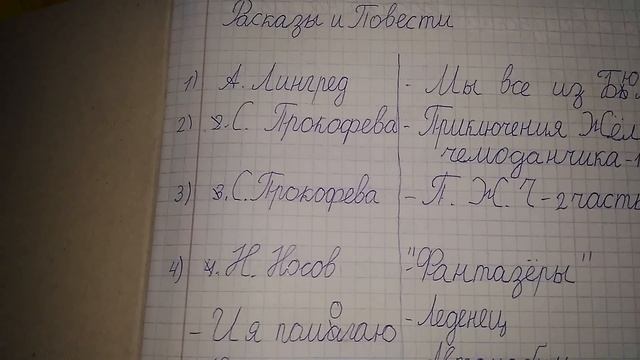 Расказы и Повести
1) А. Лингред - Мы все из Бю
2) С. Прокофева - Приключения Жёл
чемоданчика - 1
3) С. Прокофева - П. Ж. Ч - 2 часть
4) Н. Носов - "Фантазёры"
- И я помогаю - Леденец